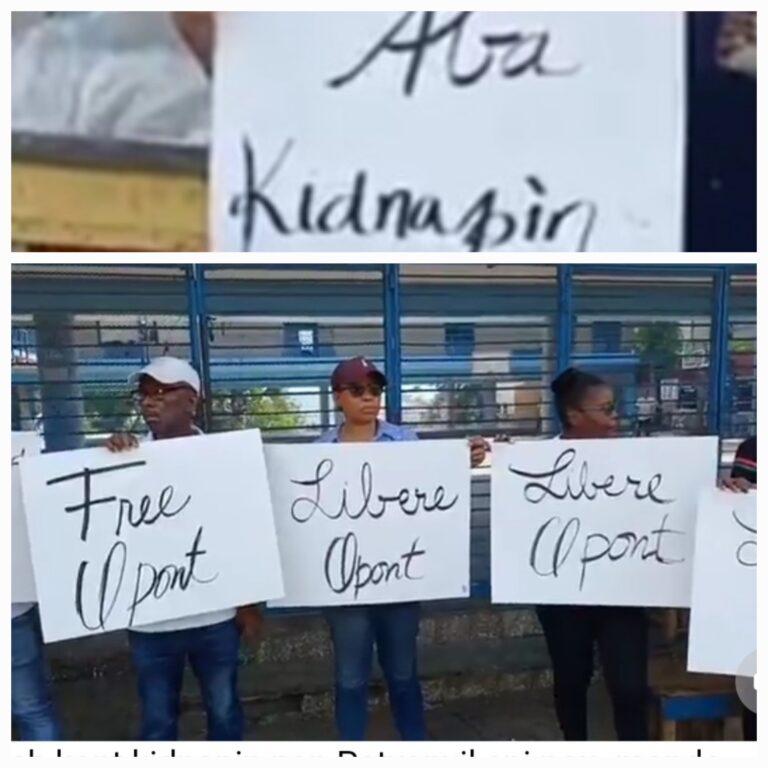 Aba
Kidnapin
Free
Opont
Libere
Opont
Libere
Opont